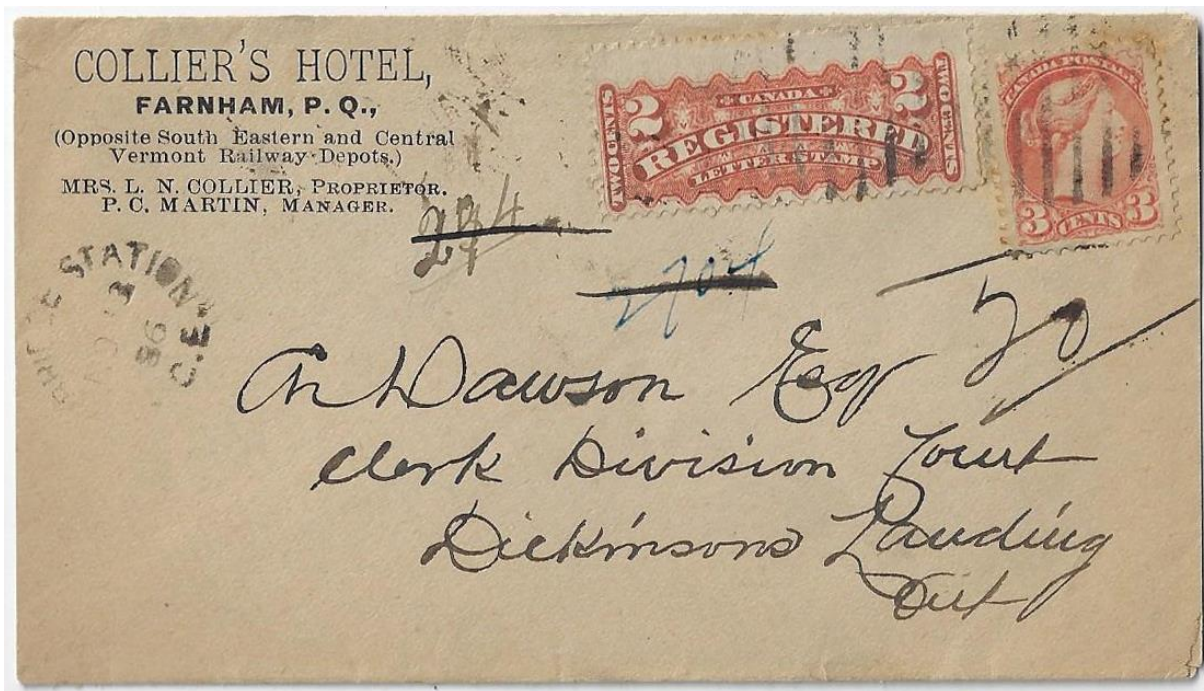 COLLIER'S HOTEL,
FARNHAM, P. Q.,
(Opposite South Eastern and Central
Vermont Railway Depots.)
MRS. L. N. COLLIER, PROPRIETOR.
P. C. MARTIN, MANAGER.
CANADA
2 REGISTERED 2
LETTER STAMP
TWO CENTS
TWO CENTS
CANADA POSTAGE
3 CENTS 3
2704
20
STATION
86
C.E.
Dawson Esq
Clerk Division Court
Dickinsons Landing
Ont